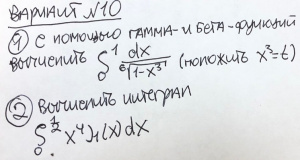 ВАРИАНТ №10
① С ПОМОЩЬЮ ГАММА- И БЕТА-ФУНКЦИЙ
ВЫЧИСЛИТЬ ∫₀¹ dx/⁶√(1-x³) (ПОЛОЖИТЬ x³=t)
② ВЫЧИСЛИТЬ ИНТЕГРАЛ
∫₀^(1/2) x⁴J₁(x)dx